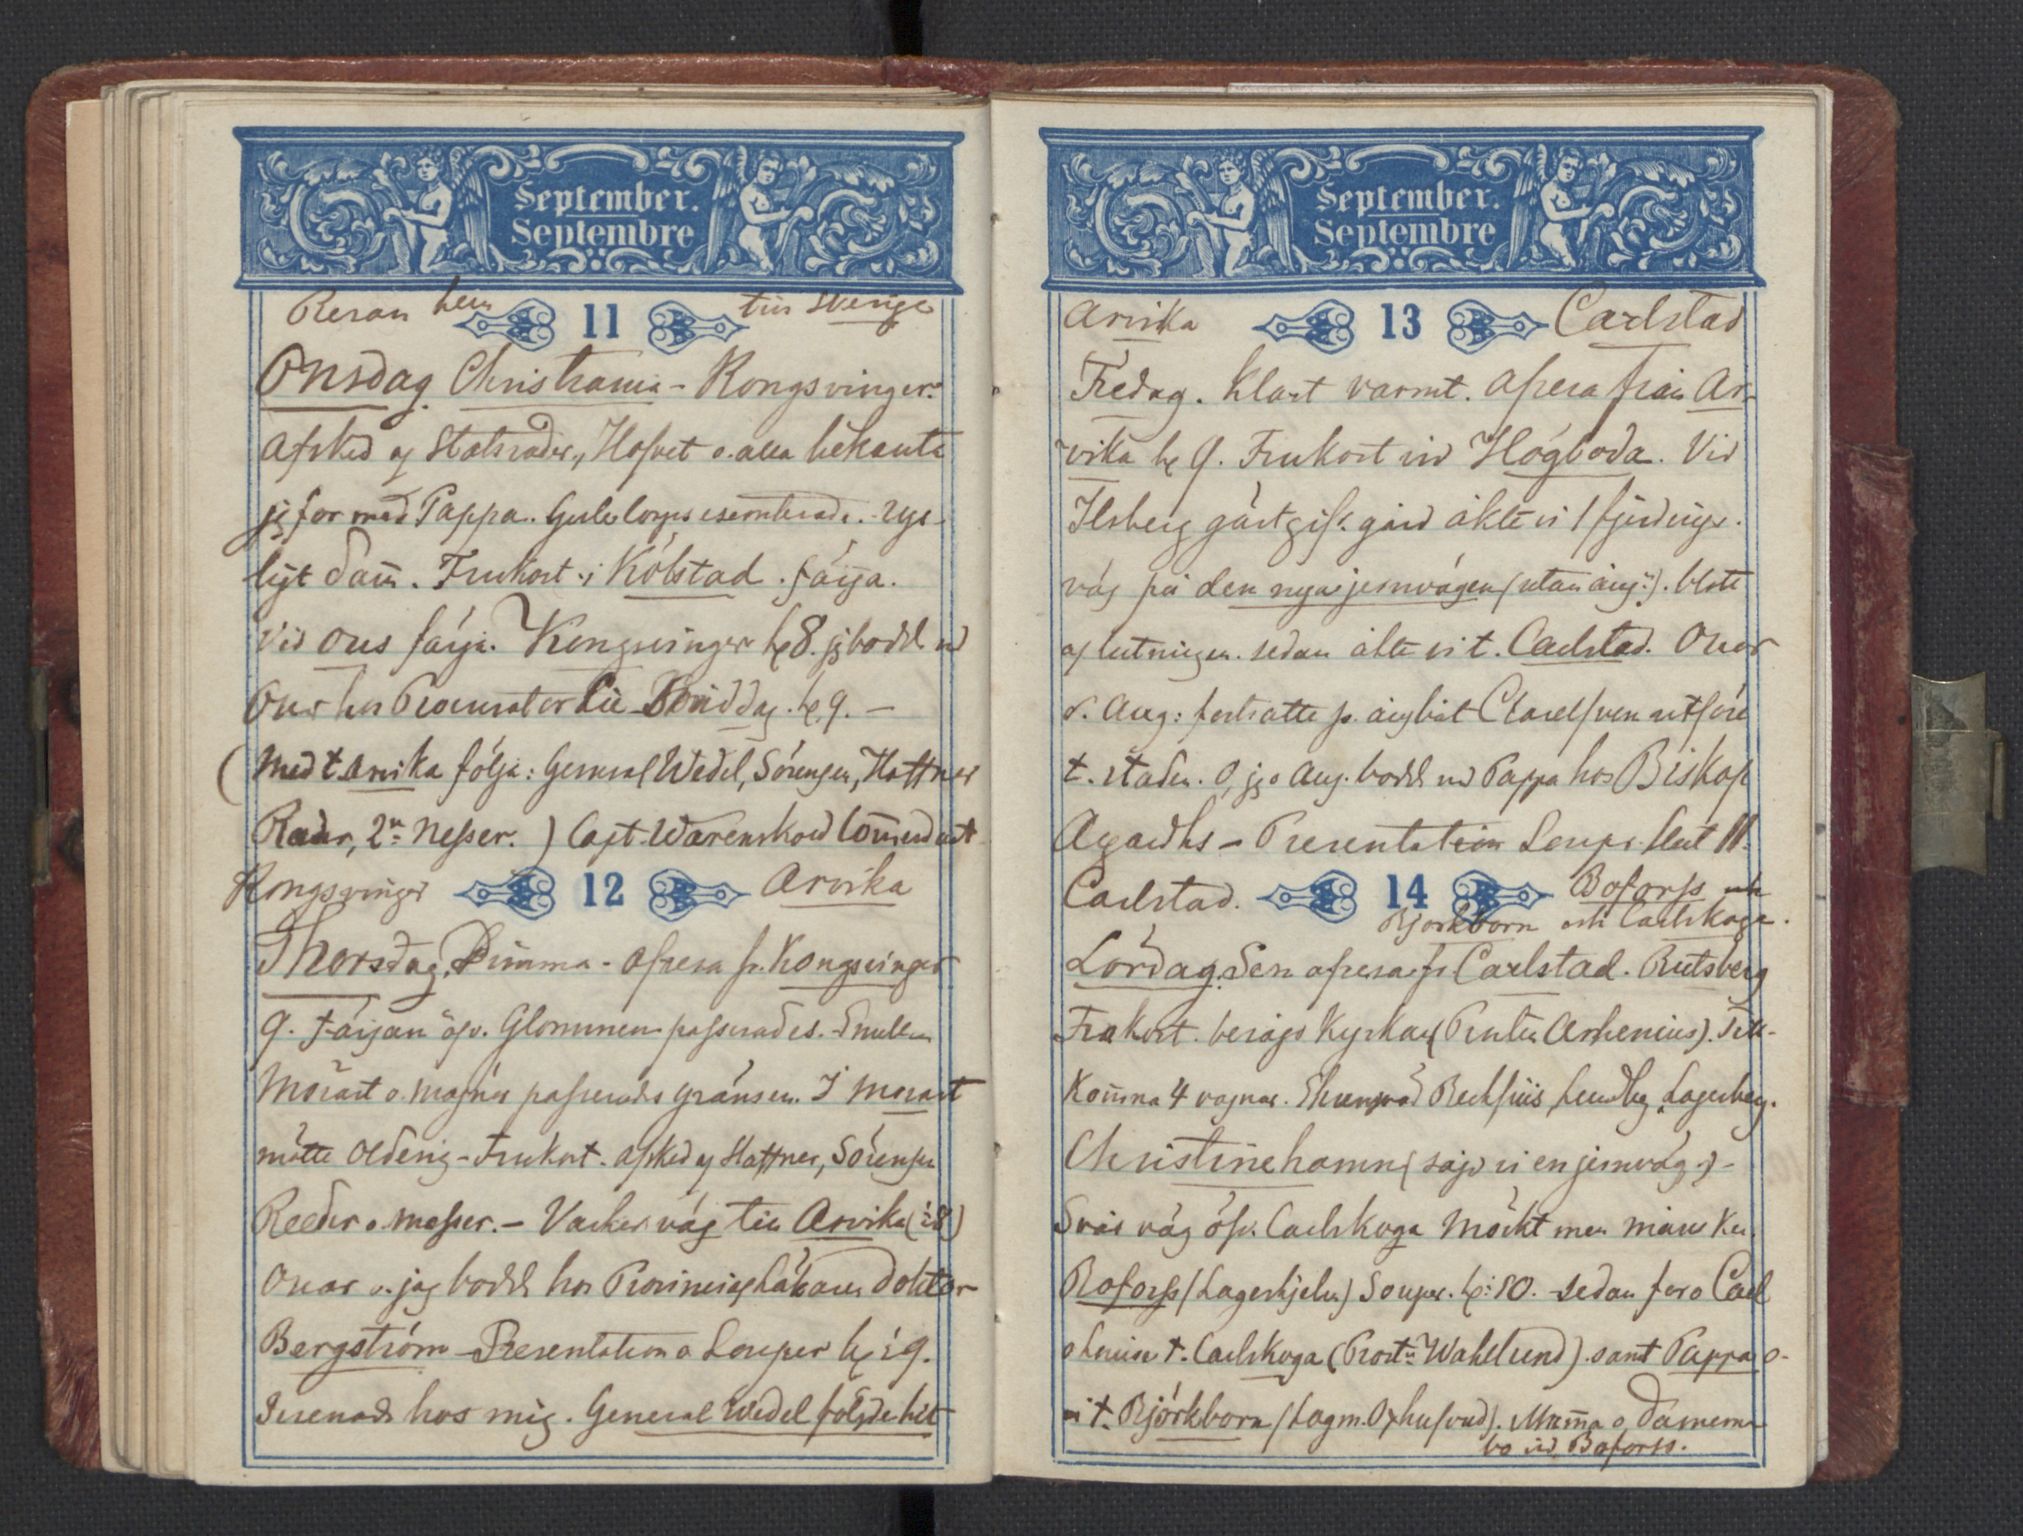 September.
Septembre
Resan hem 11 till Sverige
Onsdag Christiania - Kongsvinger.
Afsked af Statsråder, Hofvet o. alla bekanta
jg for med Pappa. Gule Corps esconterade. rys-
ligt dam. Frukost i Kölstad. färja.
Vid Ous färja. Kongsvinger kl 8. jg bodde md
Onkr hos Procurator Lie Middag. kl 9. —
(Med t. Arvika följa: General Wedel, Sörensen, Haffner
Reeder, 2ne Messer.) Capt. Warenskold Commendant
Kongsvinger 12 Arvika
Thorsdag, Dimma - afresa fr. Kongsvinger
9. Färjan öfv. Glommen passerades. Emellan
Morast o. Magnor passerades gränsen. I Morast
mötte Oldenig - Frukost. afsked af Haffner, Sörensen
Reeder o. Messer. — Vacker väg till Arvika (: 8)
Oscar o. jag bodde hos Provincialläkaren Doktor
Bergström - Presentation o Souper kl : 9.
Serenade hos mig. General Wedel följde hit
September.
Septembre
Arvika 13 Carlstad
Fredag. Klart varmt. afresa från Ar-
vika kl 9. Frukost vid Högboda. Vid
Ilsberg gästgifv. gård åkte vi 1 fjerdings
väg på den nya jernvägen (utan ång:). blott
af lutningen. sedan åkte vi t. Carlstad. Oscar
o. Aug: fortsatte p. ångbåt Clarelfven utföre
t. staden. O, jg o Aug. bodde md Pappa hos Biskop
Agardhs — Presentation Soupr. slut 11.
Carlstad. 14 Boforss och
Bjorkborn och Carlskoga.
Lördag. Sen afresa fr Carlstad. Rutsberg
Frukost. besågs Kyrkan (Prosten Arhenius). Till-
komma 4 vagnar. Ehrengrad Beckfriis, Lundbg Lagerberg.
Christinehamn (såjo vi en jernväg.) -
Svår väg öfv. Carlskoga Mörkt men månsken.
Boforss (Lagerhjelm) Souper. kl : 10. sedan foro Carl
o Louise t. Carlskoga (Prostn Wahlund). samt Pappa o-
vi t. Björkborn (Lagm. Oxhufvud). Mamma o Damerna
bo vid Boforss.